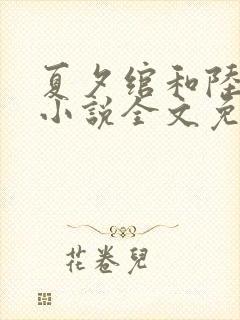 夏夕绾和陸
小説全文免
花卷兒